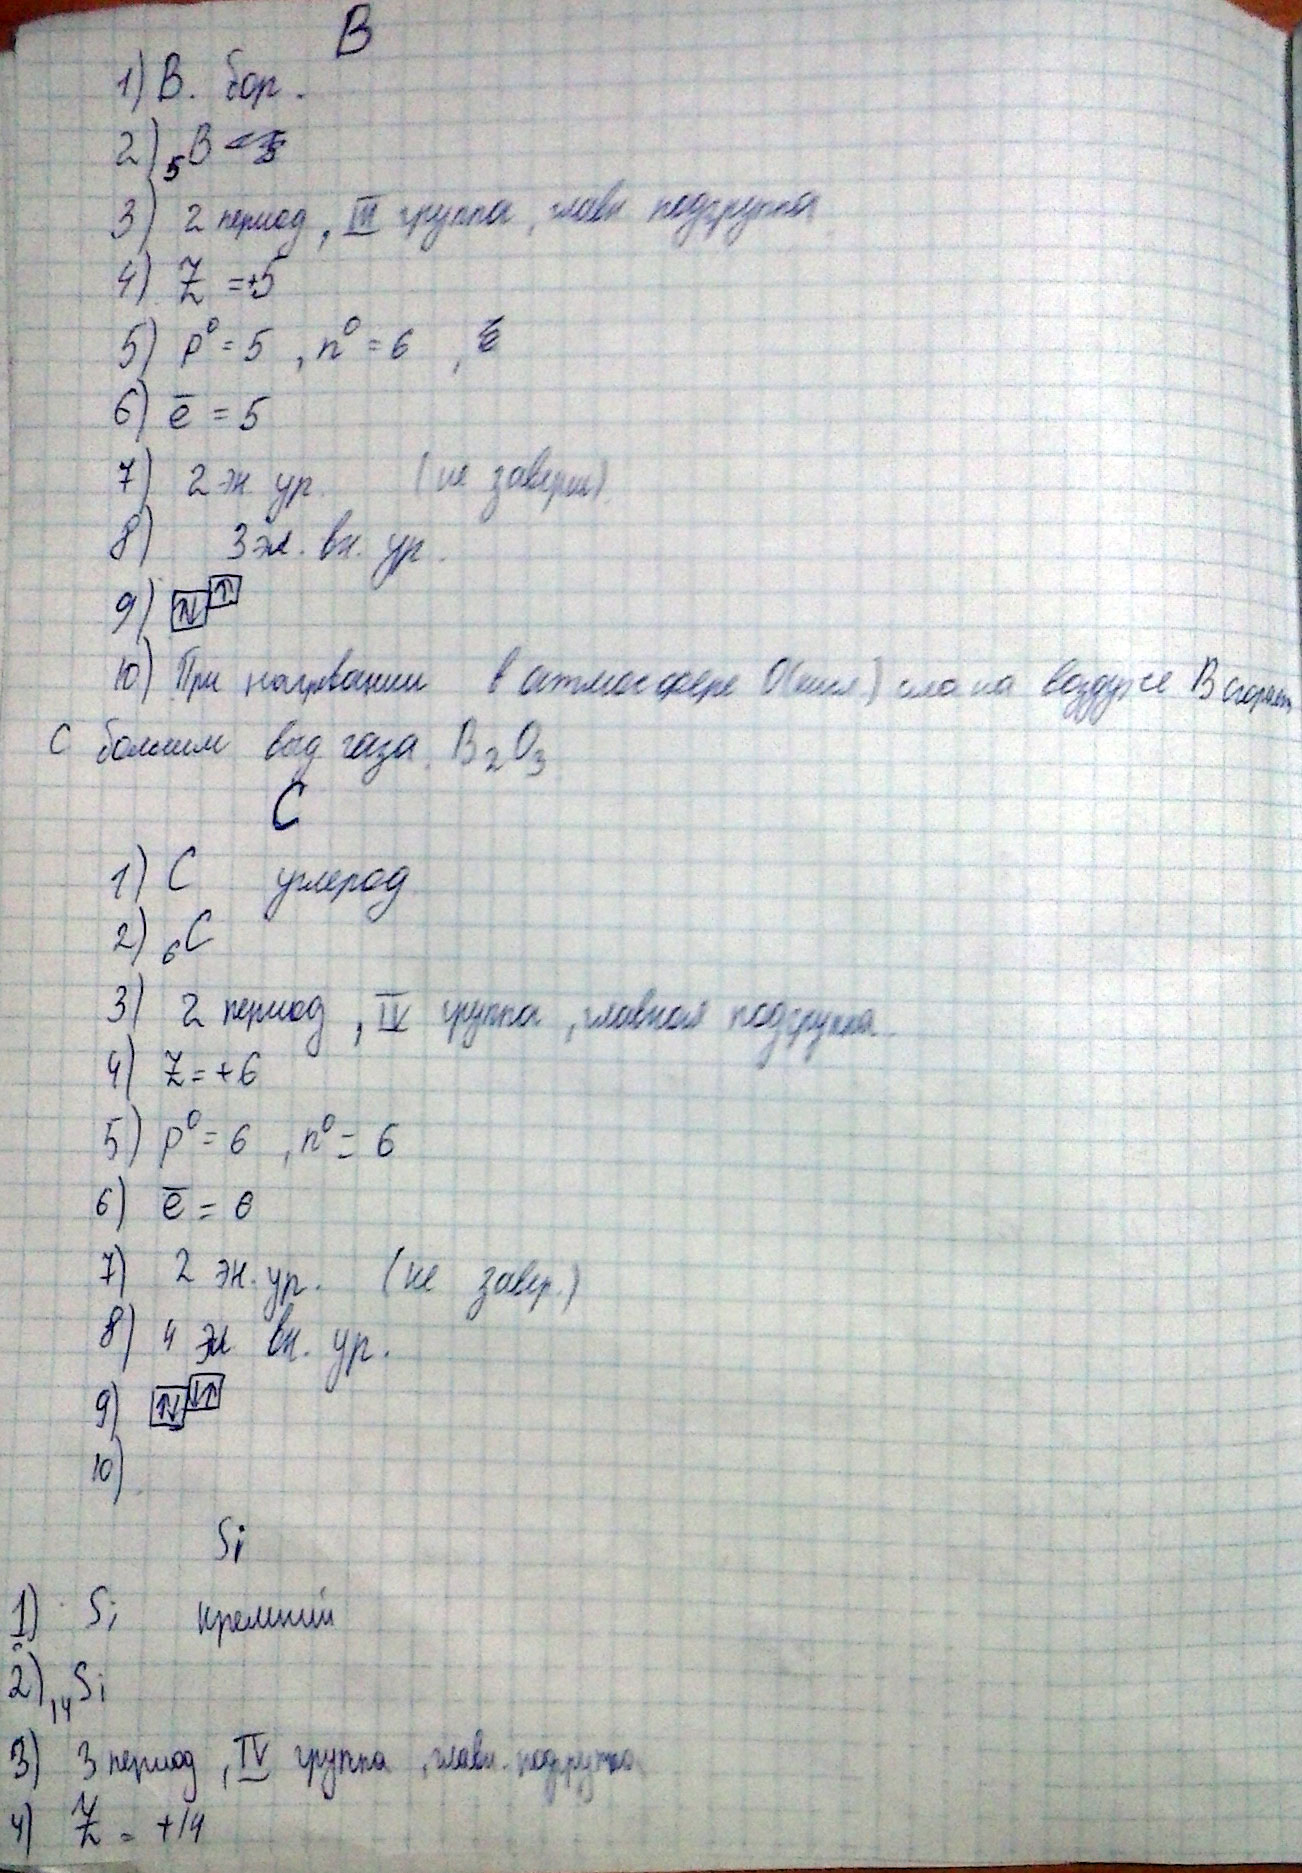 B
1) B. бор.
2) ₅B
3) 2 период, III группа, главн подгруппа
4) Z = +5
5) p⁰ = 5 , n⁰ = 6 ,
6) e̅ = 5
7) 2 эн. ур. (не заверш)
8) 3 эл. вн. ур.
9) ↑↓ ↑
10) При нагревании в атмосфере O(кисл) или на воздухе B сгорает
с большим выд газа. B₂O₃
C
1) C углерод
2) ₆C
3) 2 период, IV группа, главная подгруппа.
4) Z = +6
5) p⁰ = 6 , n⁰ = 6
6) e̅ = 6
7) 2 эн. ур. (не завер.)
8) 4 эл вн. ур.
9) ↑↓ ↓↑
10)
Si
1) Si кремний
2) ₁₄Si
3) 3 период, IV группа, главн. подгруппа
4) Z = +14